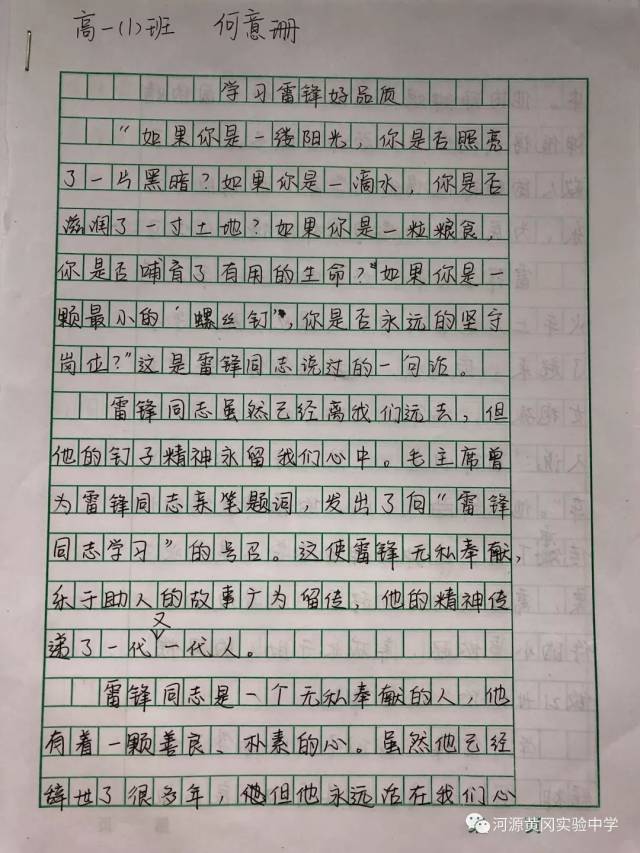 高一(1)班 何意珊
学习雷锋好品质
"如果你是一缕阳光，你是否照亮
了一片黑暗？如果你是一滴水，你是否
滋润了一寸土地？如果你是一粒粮食，
你是否哺育了有用的生命？如果你是一
颗最小的"螺丝钉"，你是否永远的坚守
岗位？"这是雷锋同志说过的一句话。
雷锋同志虽然已经离我们远去，但
他的钉子精神永留我们心中。毛主席曾
为雷锋同志亲笔题词，发出了向"雷锋
同志学习"的号召。这使雷锋无私奉献，
乐于助人的故事广为留传，他的精神传
递了一代又一代人。
雷锋同志是一个无私奉献的人，他
有着一颗善良、朴素的心。虽然他已经
辞世了很多年，但他永远活在我们心
河源黄冈实验中学